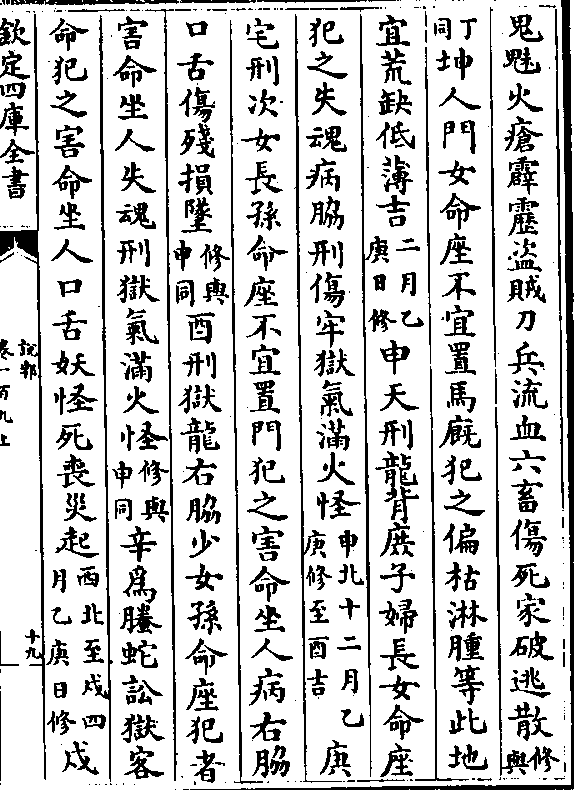 鬼魅火瘡霹靂盜賊刀兵流血六畜傷死家破逃散修與
丁同坤人門女命座不宜置馬廐犯之偏枯淋腫等此地
宜荒缺低薄吉二月乙庚日修申天刑龍背庶子婦長女命座
犯之失魂病脇刑傷牢獄氣滿火怪申北十二月乙庚修至酉吉庚
宅刑次女長孫命座不宜置門犯之害命坐人病右脇
口舌傷殘損墜修與申同酉刑獄龍右脇少女孫命座犯者
害命坐人失魂刑獄氣滿火怪修與申同辛為螣蛇訟獄客
命犯之害命坐人口舌妖怪死喪災起西北至戍四月乙庚日修戍
欽定四庫全書
說郛
卷一百九上
十九